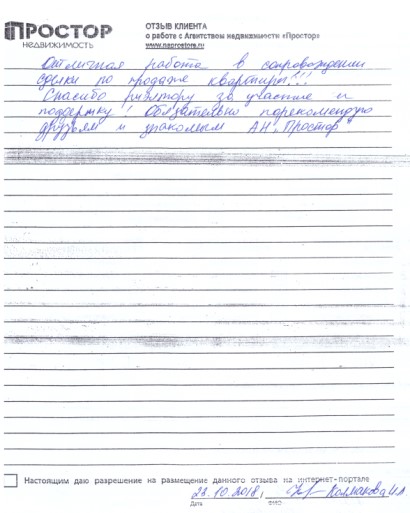 ПРОСТОР
НЕДВИЖИМОСТЬ
ОТЗЫВ КЛИЕНТА
о работе с Агентством недвижимости «Простор»
www.naprostore.ru
Отличная работа в сопровождении
сделки по продаже квартиры!!!
Спасибо риэлтору за участие и
поддержку! Обязательно порекомендую
друзьям и знакомым АН "Простор"
Настоящим даю разрешение на размещение данного отзыва на интернет-портале
23.10.2018, Колмакова И.А
Дата ФИО